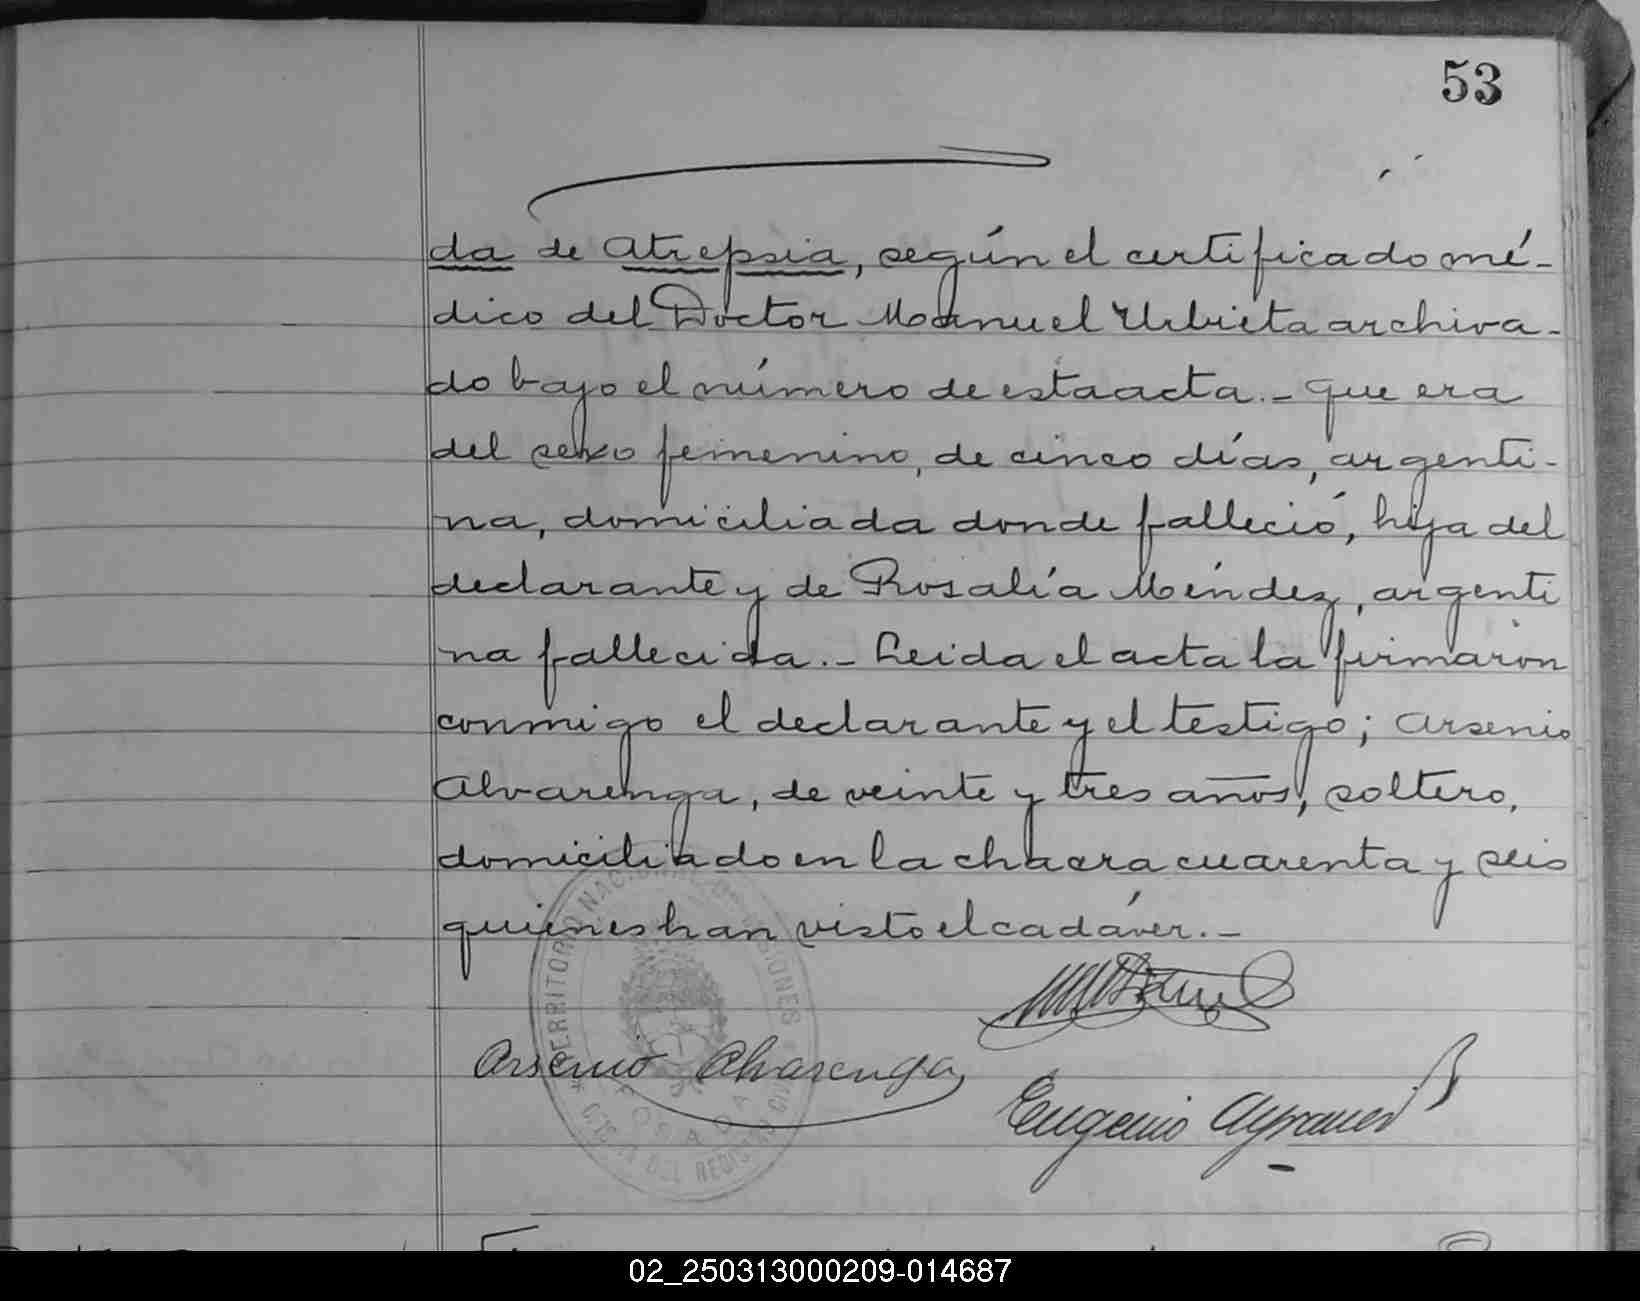 53
da de atrepsia, según el certificado mé-
dico del Doctor Manuel Urbieta archiva-
do bajo el número de esta acta.- que era
del sexo femenino, de cinco días, argenti-
na, domiciliada donde falleció, hija del
declarante y de Rosalía Méndez, argenti
na fallecida.- Leida el acta la firmaron
conmigo el declarante y el testigo; Arsenio
Alvarenga, de veinte y tres años, soltero,
domiciliado en la chacra cuarenta y seis
quienes han visto el cadáver.-
TERRITORIO NACIONAL DE MISIONES
Arsenio Alvarenga
Eugenio
POSADAS
DEL REGISTRO CIVIL
02_250313000209-014687